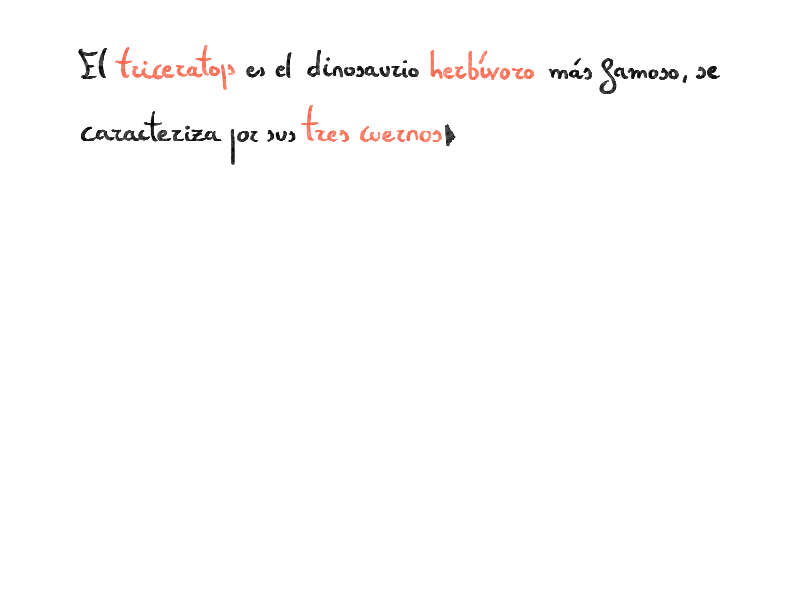 El triceratops es el dinosaurio herbívoro más famoso, se
caracteriza por sus tres cuernos